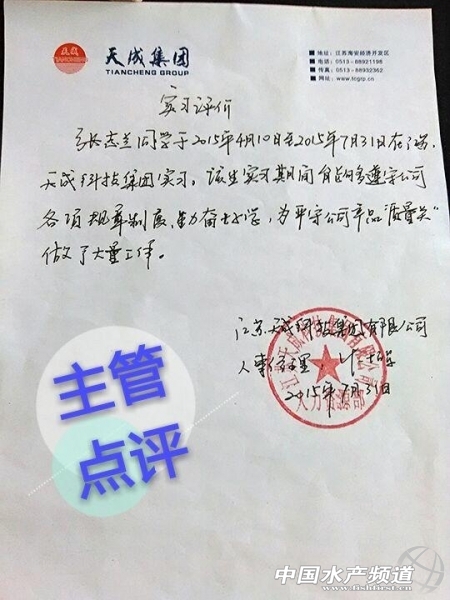 天成集团
TIANCHENG GROUP
地址:江苏海安经济开发区
电话:0513-88921198
传真:0513-88932362
网址:www.tcgrp.cn
实习评价
张志兰同学于2015年4月10日至2015年7月31日在江苏
天成科技集团实习。该生实习期间自始至终遵守公司
各项规章制度,勤奋好学,为严守公司产品“质量关”
做了大量工作。
江苏天成科技集团有限公司
人事经理:
2015年7月31日
人力资源部
主管
点评
中国水产频道
www.fishfirst.cn